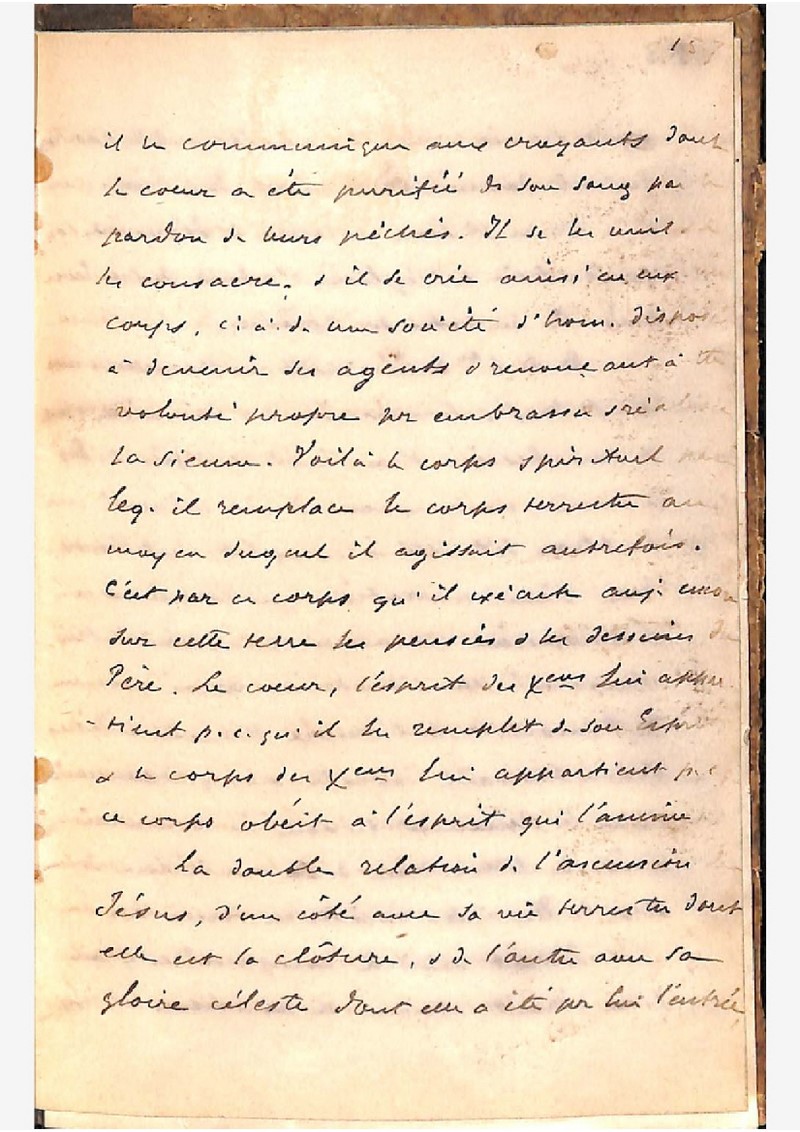 157
il le communique aux croyants dont
le coeur a été purifié de son sang par le
pardon de leurs péchés. Il se les unit
les consacre, & il se crée ainsi en eux
corps, c. à. d. une société d'hom. disposés
à devenir ses agents & renonçant à
volonté propre pr embrasser &
la sienne. Voilà le corps spirituel
leq. il remplace le corps terrestre au
moyen duquel il agissait autrefois.
C'est par ce corps qu'il exécute auj. encore
sur cette terre les pensées & les desseins du
Père. Le coeur, l'esprit des Xens lui appar
-tient p. c. qu'il les remplit de son Esprit
& le corps des Xens lui appartient p. c.
ce corps obéit à l'esprit qui l'anime
La double relation de l'ascension
Jésus, d'un côté avec sa vie terrestre dont
elle est la clôture, & de l'autre avec sa
gloire céleste dont elle a été pr lui l'entrée